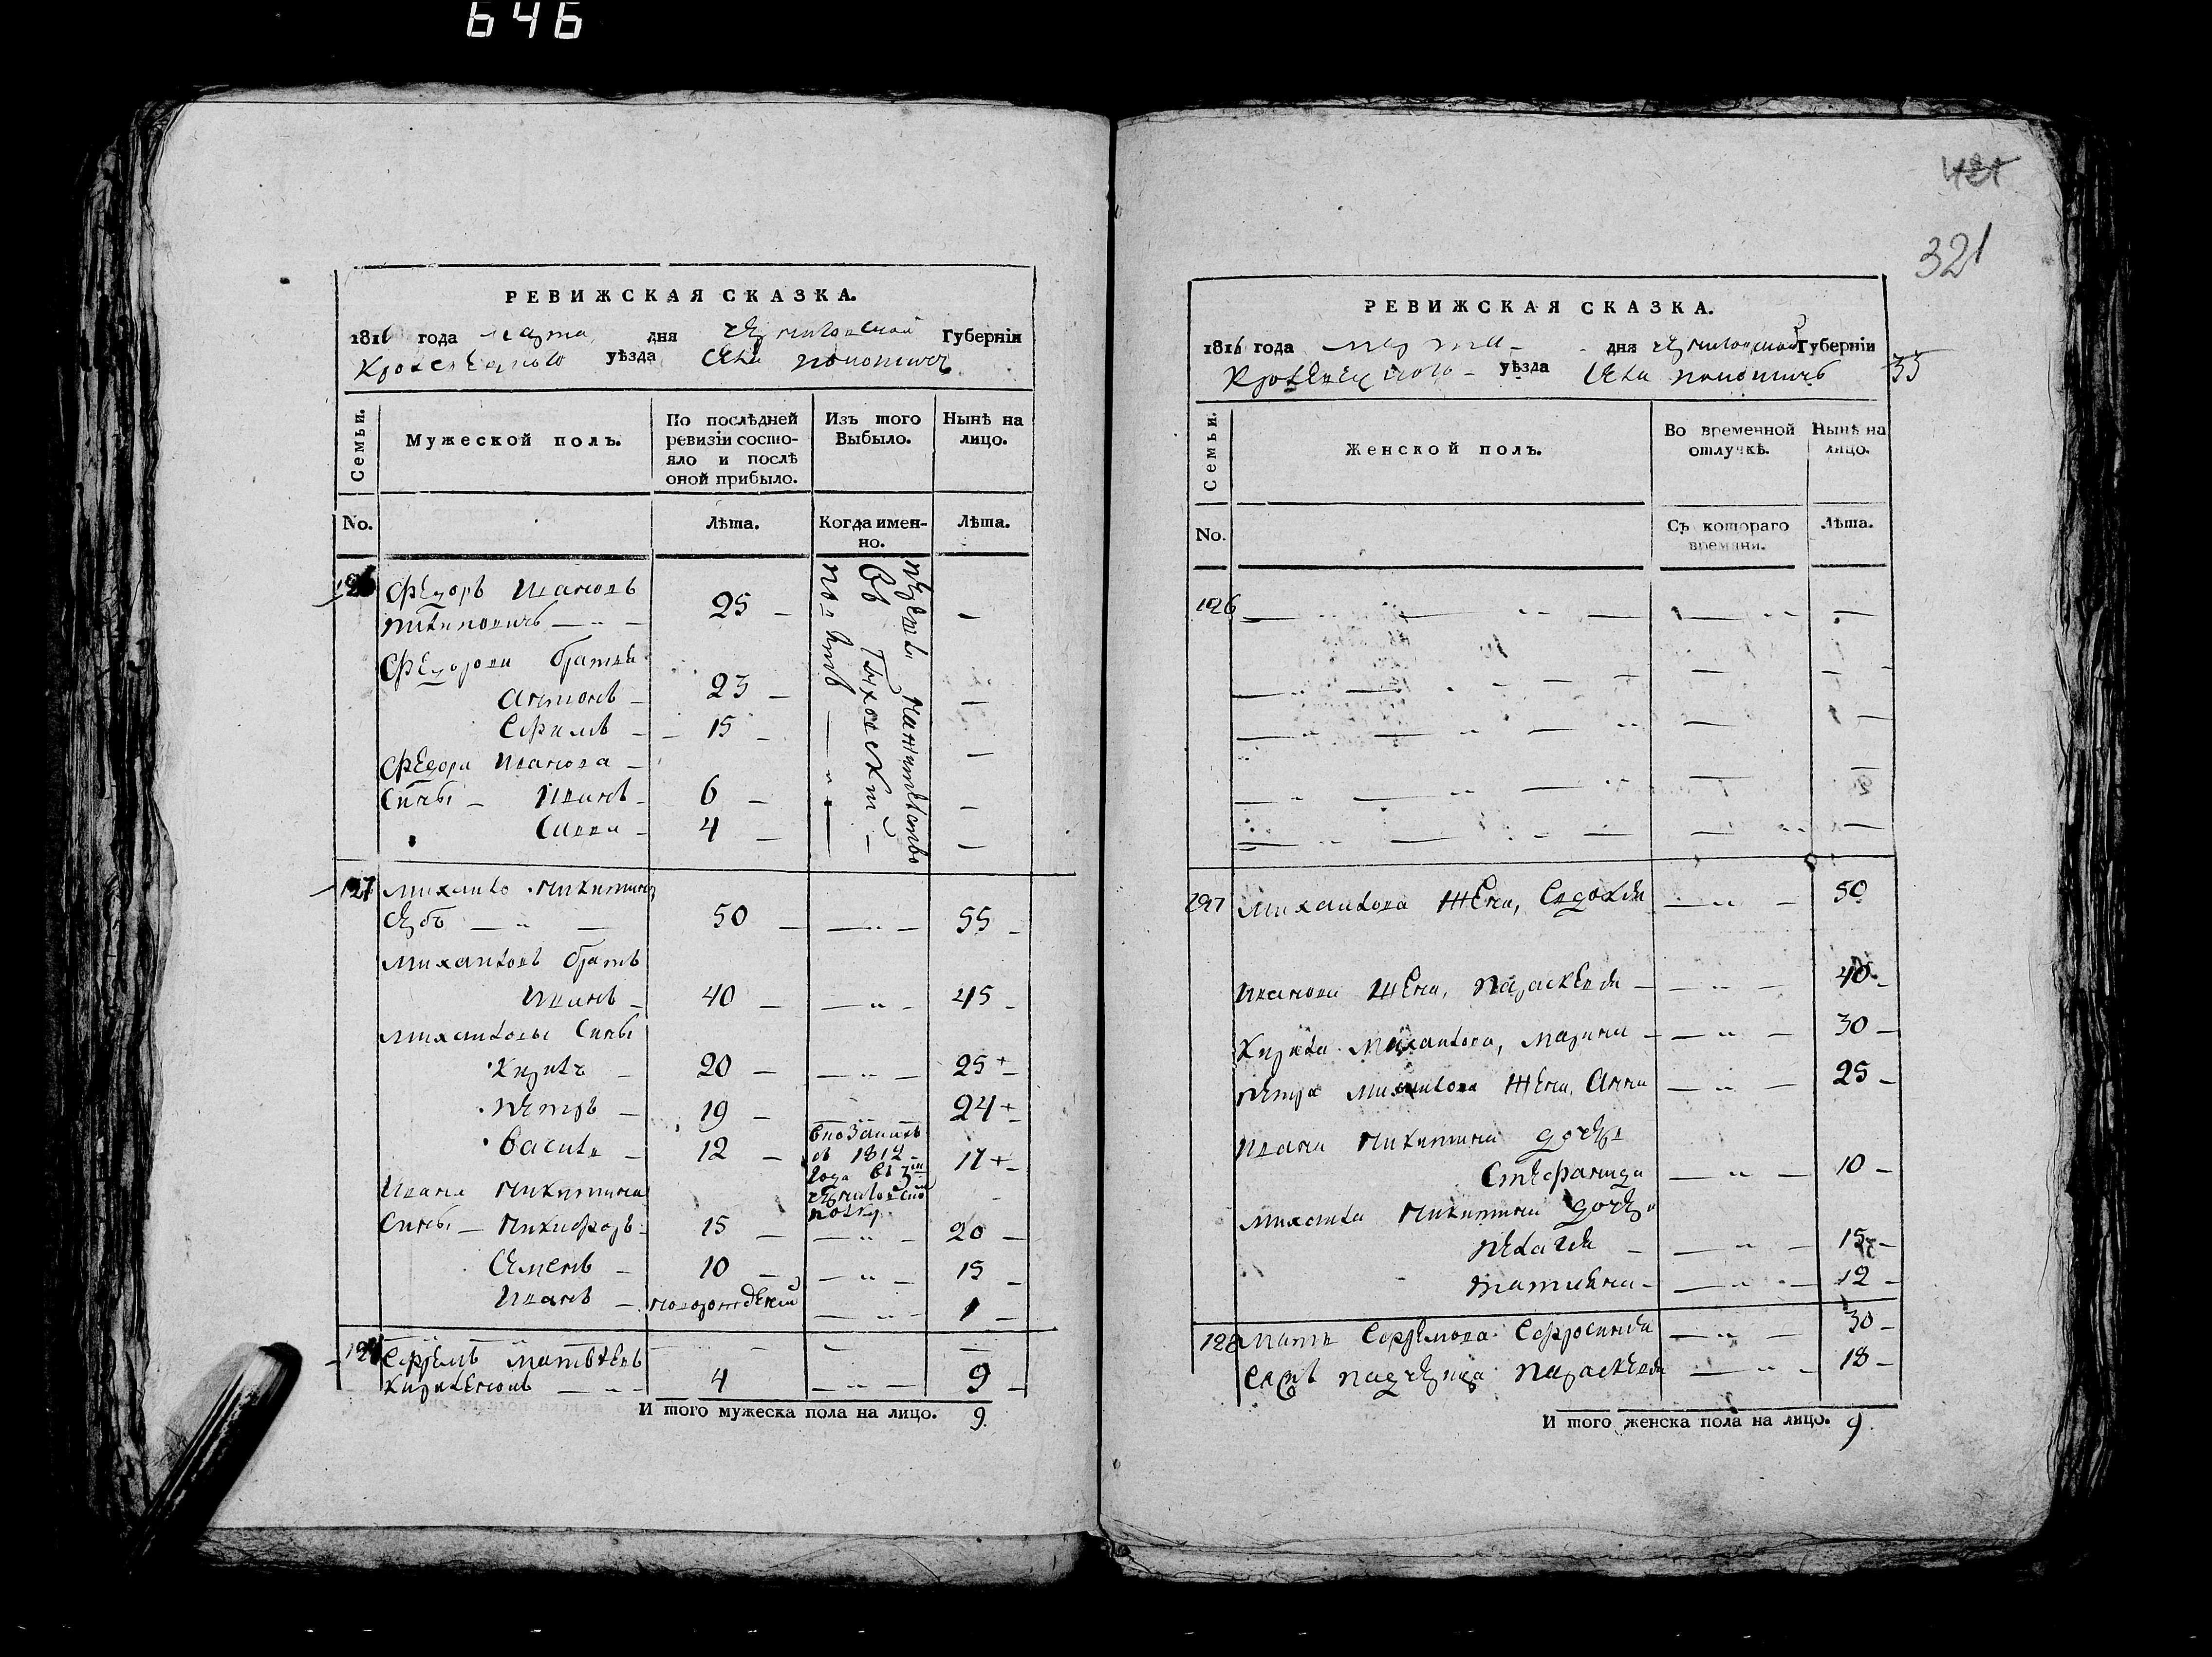 646
РЕВИЖСКАЯ СКАЗКА.
1816 года марта дня Черниговской Губерніи
Кролевецкого уѣзда Села Понотичъ
Семьи.
Мужеской полъ.
По послѣдней ревизіи состо-
яло и послѣ
оной прибыло.
Изъ того
Выбыло.
Нынѣ на
лицо.
No.
Лѣта.
Когда имен-
но.
Лѣта.
126 Федоръ Ивановъ
25 —
Федорови братья
Антонъ — 23 — —
Ефимъ — 15 — —
Федора Иванова —
Сины — Иванъ — 6 — —
Савва — 4 — —
127 Михайло Никитинъ
50 — — 55 —
Михайловъ братъ
Иванъ — 40 — — 45 —
Михайловы Сины
Кирилъ — 20 — — 25 +
Петръ — 19 — 24 +
Василь — 12 — 17 +
в 1812
года в
Черниговскій
полку
Ивана Никитина
Сины — Никифоръ 15 — — 20 —
Семенъ — 10 — — 15 —
Иванъ — новорожденій — 1 —
128 Ефремъ Матвѣевъ
4 — 9 —
И того мужеска пола на лицо. 9.
421
321
35
РЕВИЖСКАЯ СКАЗКА.
1816 года марта дня Черниговской Губерніи
Кролевецкого уѣзда Села Понотичъ
Семьи.
Женской полъ.
Во временной
отлучкѣ.
Нынѣ на
лицо.
No.
Съ котораго
времяни.
Лѣта.
126
127 Михайлова Жена, Евдокія — 50
Иванова Жена, Параскевія — 40 —
Кирила Михайлова, Марина — 30 —
Петра Михайлова Жена, Анна — 25 —
Ивана Никитина дочерь
Стефанида — 10 —
Михайла Никитина дочери
Пелагея — 15 —
Татияна — 12 —
128 Мать Ефремова Ефросинія — 30 —
падчерица Параскевія — 18 —
И того женска пола на лицо. 9.